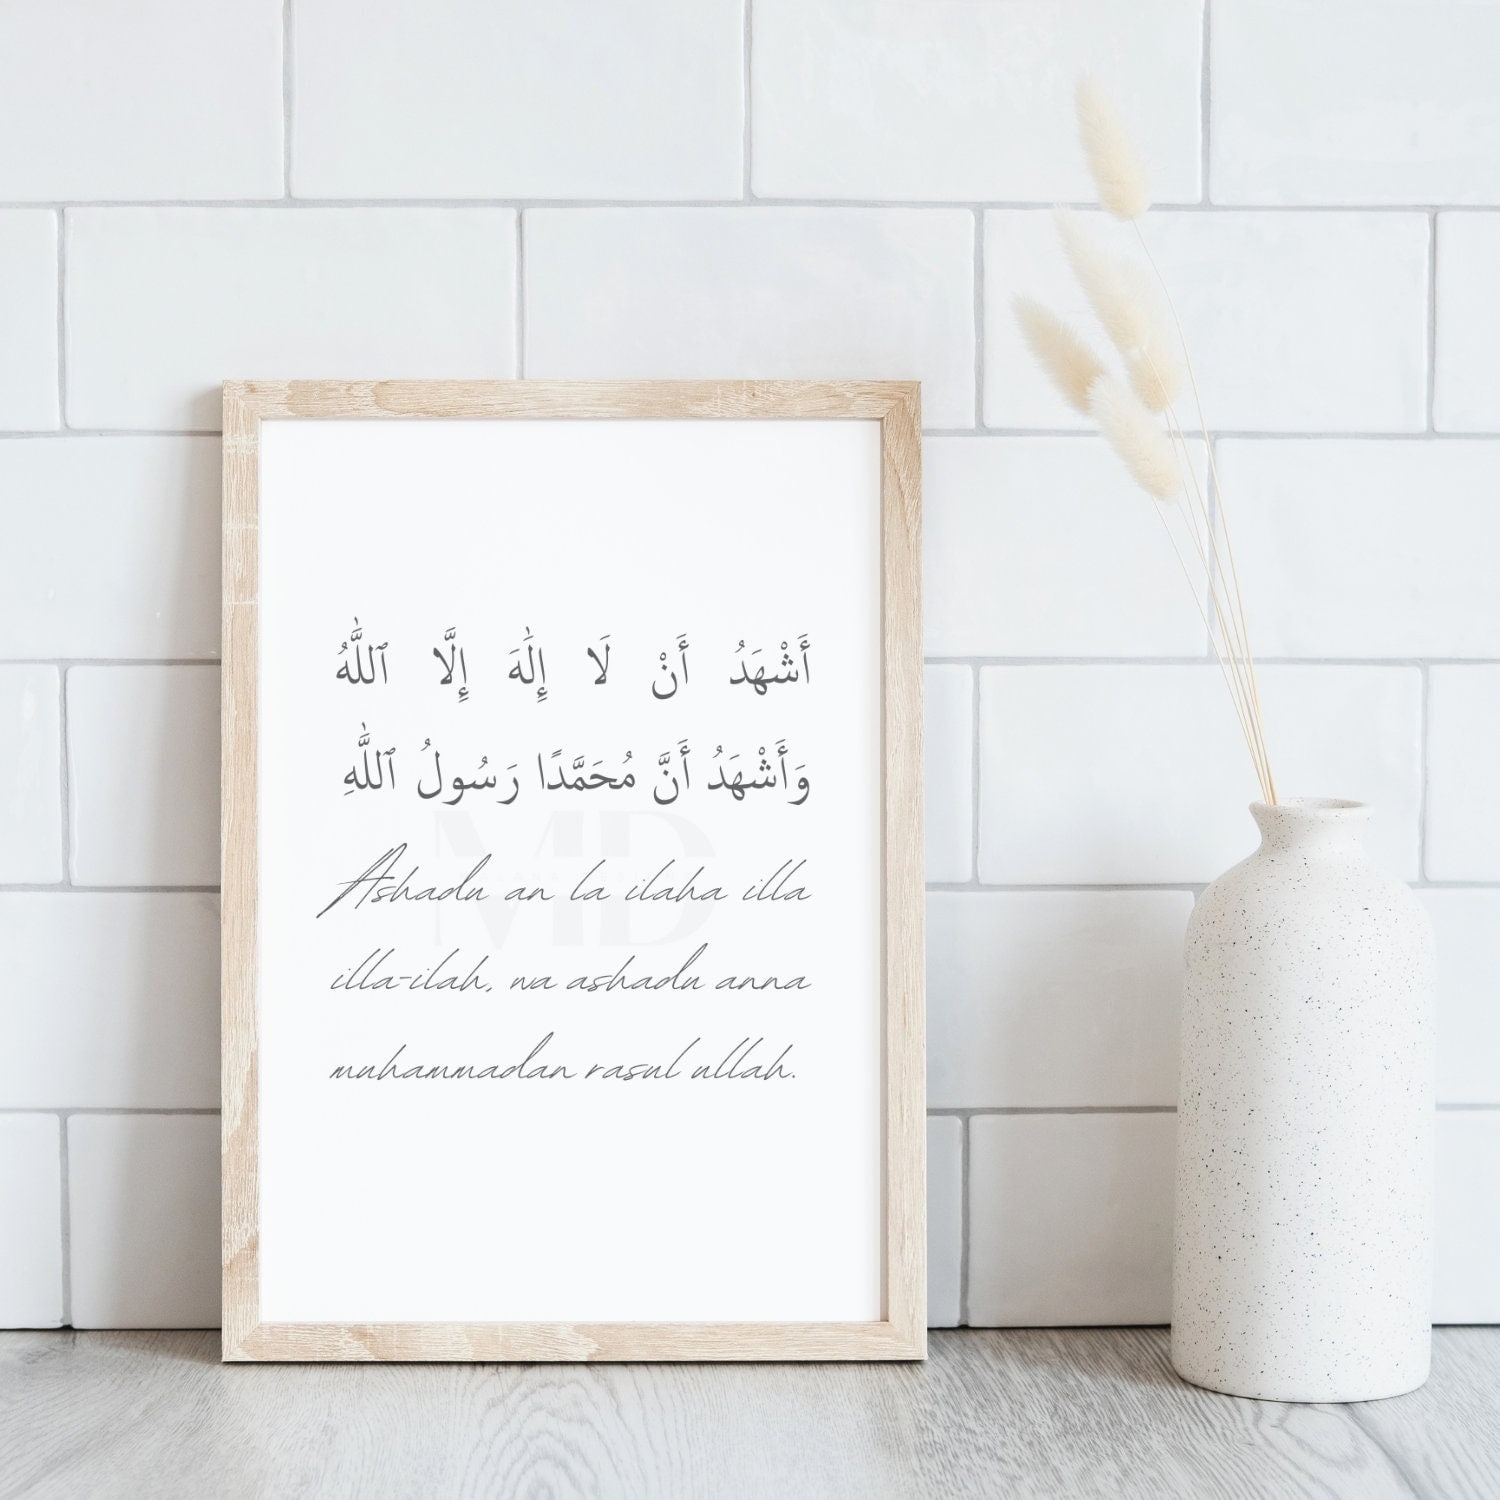 أَشْهَدُ أَنْ لَا إِلَٰهَ إِلَّا ٱللَّٰهُ
وَأَشْهَدُ أَنَّ مُحَمَّدًا رَسُولُ ٱللَّٰهِ
Ashadu an la ilaha illa
illa-ilah, wa ashadu anna
muhammadan rasul ullah.
MD